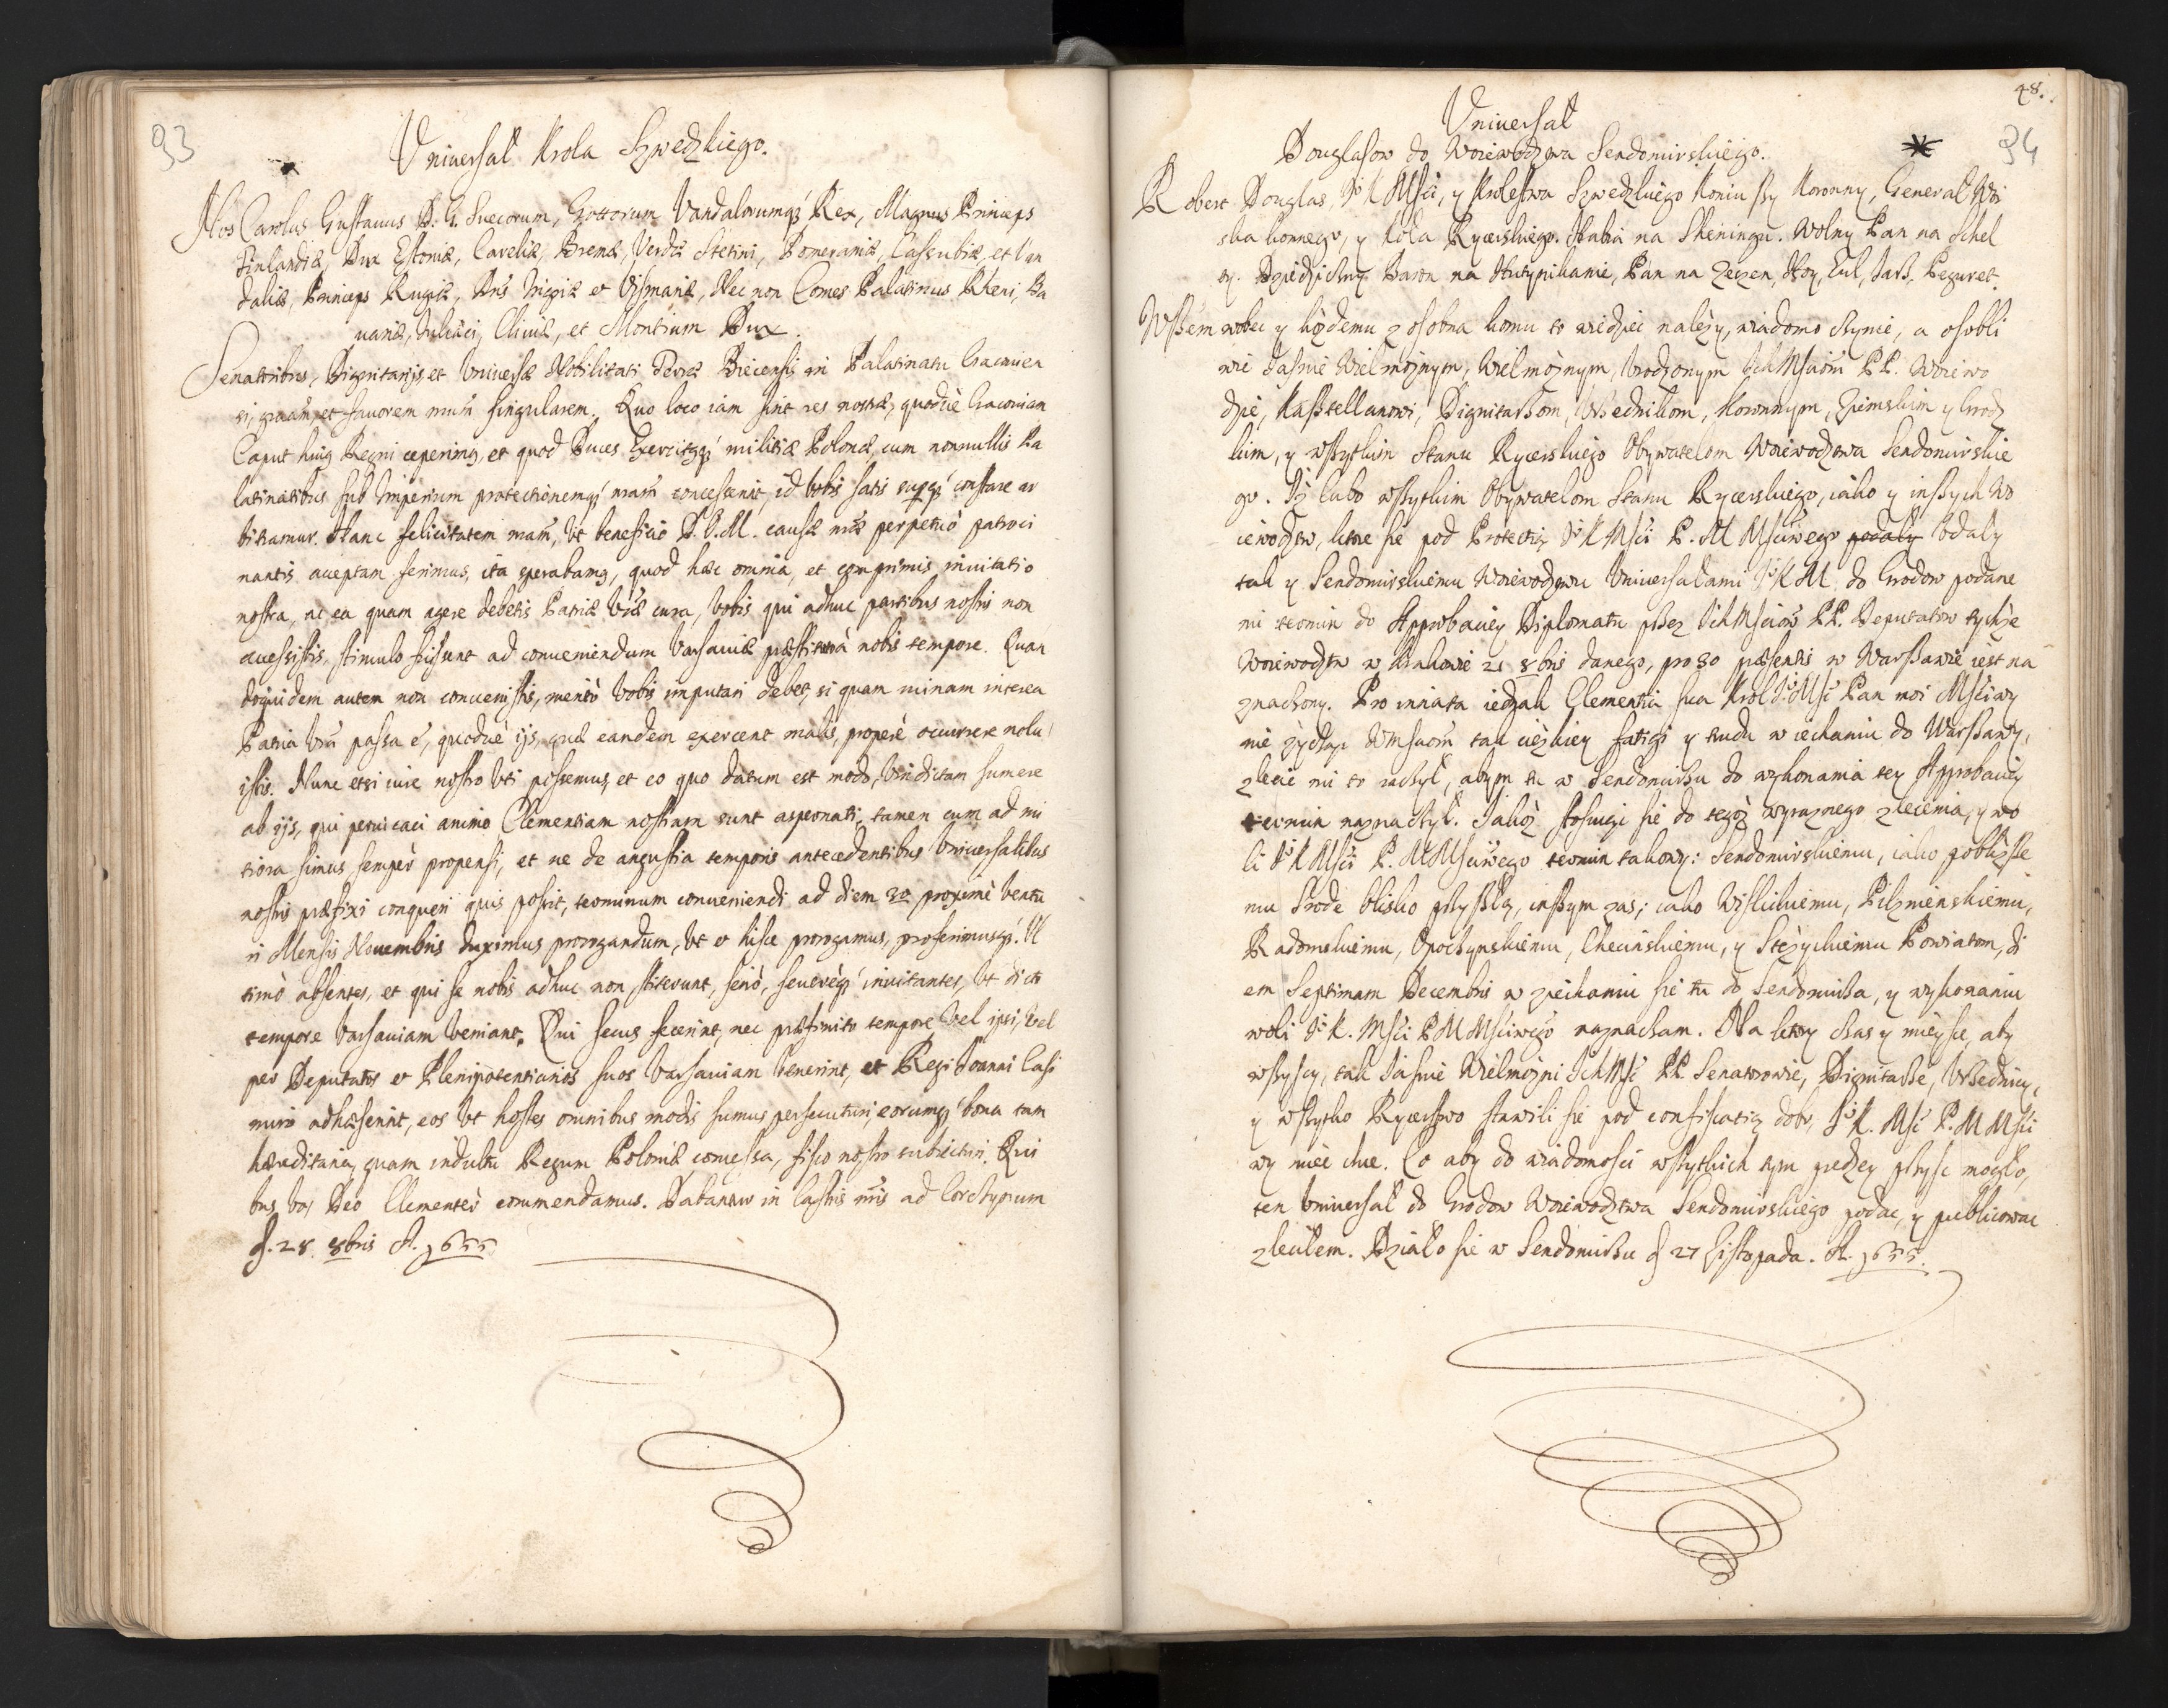 93
Uniuersał Krola Szwedzkiego.
Nos Carolus Gustauus D. G. Suecorum, Gottorum Vandalorumq́ Rex, Magnus Princeps
Finlandiæ, Dux Estoniæ, Careliæ, Bremæ, Verdæ Stetini, Pomeraniæ, Cassubiæ, et Van
daliæ, Princeps Rugiæ, Dn̄s Ingriæ et Vismariæ, Nec non Comes Palatinus Rheni, Ba
uariæ, Juliaci, Cliuiæ, et Montium Dux.
Senatoribus, Dignitarijs, et Vniuersæ Nobilitati Decrs Biecensis in Palatinatu Cracouien
si, graām et fauorem nrūm singularem. Quo loco iam sint res nostræ, quoduè Cracouiam
Caput huiq Regni ceperimq, et quod Duces Exercitqq́ militiæ Polonæ, cum nonnullis Pa
latinatibus sub Imperium protectionemq́ nrām concesserit, id vobis satis supq́ constare ar
bitramur. Hanc felicitatem nrām, Vt beneficio D. O. M. causæ nr̄æ perpetuò patroci
nantis acceptam ferimus, ita sperabamq, quod hæc omnia, et comprimis inuitatio
nostra, ac ea quam agere debetis Patriæ Vr̄æ cura, Vobis qui adhuc partibus nostris non
accessistis, stimulo fuissent ad conueniendum Varsauiæ præstituto à nobis tempore. Quan
doquidem autem non conuenistis, meritò Vobis imputari debet, si quam ruinam interea
Patria Vrā passa ē, quoduè ijs, quæ eandem exercent malis, properè occurrere nolu
istis. Nunc etsi iure nostro Vti possemus, et eo quo datum est modo, Vindictam sumere
ab ijs, qui peruicaci animo Clementiam nostram sunt aspernati, tamen cum ad mi
tiora simus semper propensi, et ne de angustia temporis antecedentibus Vniuersalibus
nostris præfixi conqueri quis possit, terminum conueniendi ad diem 30 proximè ventu
ri Mensis Nouembris duximus prorogandum, Vt et hisce prorogamus, proferimusq́. Vl
timò absentes, et qui se nobis adhuc non stiterunt, seriò, seuerèq́ inuitantes, Vt dicto
tempore Varsauiam veniant. Qui secus fecerint, nec præfinito tempore Vel ipsi, Vel
per Deputatos et Plenipotentiarios suos Varsauiam Venerint, et Regi Joanni Casi
miro adhæserint, eos Vt hostes omnibus modis sumus persecuturi, eorumq́ bona tam
hæreditaria, quam indultu Regum Poloniæ concessa, fisco nostro subiecturi. Qui
bus Vos Deo Clementer commendamus. Dabantur in Castris nr̄is ad Corczynum
d. 28. 8bris A. 1655

48.
94
Uniuersał
Douglasow do Woiewodztwa Sendomirskiego.
Robert Douglas J° K Mści, y Krolestwa Szwedzkiego Koniuszy Koronny, Generał Woi
ska konnego, y Koła Rycerskiego. Hrabia na Skeningu. Wolny Pan na Schel
by. Dziedziczny Baron na Whitynikamie, Pan na Zezen, Hoy, Eul, Jass, Peguret.
Wszem wobec y kożdemu z osobna komu to wiedziec należy, wiadomo czynie, a osobli
wie Jasnie Wielmożnym, Wielmożnym, Vrodzonym IchMściom PP. Woiewo
dzie, Kasztellanowi, Dignitarzom, Vrzednikom, Koronnym, Ziemskim y Grodz
kim, y wszytkim Stanu Rycerskiego Obywatelom Woiewodztwa Sendomirskie
go. Iż lubo wszytkim Obywatelom Stanu Rycerskiego, iako y inszych Wo
iewodztw, ktore sie pod Protectią J° K Mści P. M Mściwego podały Vdały
tak y Sendomirskiemu Woiewodztwu Vniuersałami J° K M. do Grodow podane
mi termin do Approbaciey Diplomatu przez IchMściow PP. Deputatow tychże
Woiewodztw w Krakowie 21 8bris danego, pro 30 præsentis w Warszawie iest na
znaczony. Pro innata iednak Clementia sua Krol J° Mść Pan moi Mściwy
nie życząc WMściom tak ciężkiey fatigi y trudu w iechaniu do Warszawy,
zlecić mi to raczył, abym tu w Sendomirzu do wykonania tey Approbaciey
termin naznaczył. Jakoż stosuiąc sie do tegoż wyraznego zlecenia, y wo
li J° K Mści P. M Mściwego termin takowy: Sendomirskiemu, iako pobliższe
mu Srode blisko przyszłą, inszym zas; iako Wislickiemu, Pilznieńskiemu,
Radomskiemu, Opoczynskiemu, Chęcinskiemu, y Stężyckiemu Powiatom, di
em Septimam Decembris w ziechaniu sie tu do Sendomirza, y wykonaniu
woli J° K. Mści P M Mściwego naznaczam. Na ktory czas y mieysce, aby
wszyscy, tak Jasnie Wielmożni IchMść PP. Senatorowie, Dignitarze, Vrzednicy,
y wszytko Rycerstwo stawili sie pod confiscatią dobr, J° K. Mść P. M Mści
wy miec chce. Co aby do wiadomości wszytkich tym prędzey przyść mogło,
ten Vniuersał do Grodow Woiewodztwa Sendomirskiego podac, y publicowac
zleciłem. Działo sie w Sendomirzu d 27 Listopada. A. 1655.